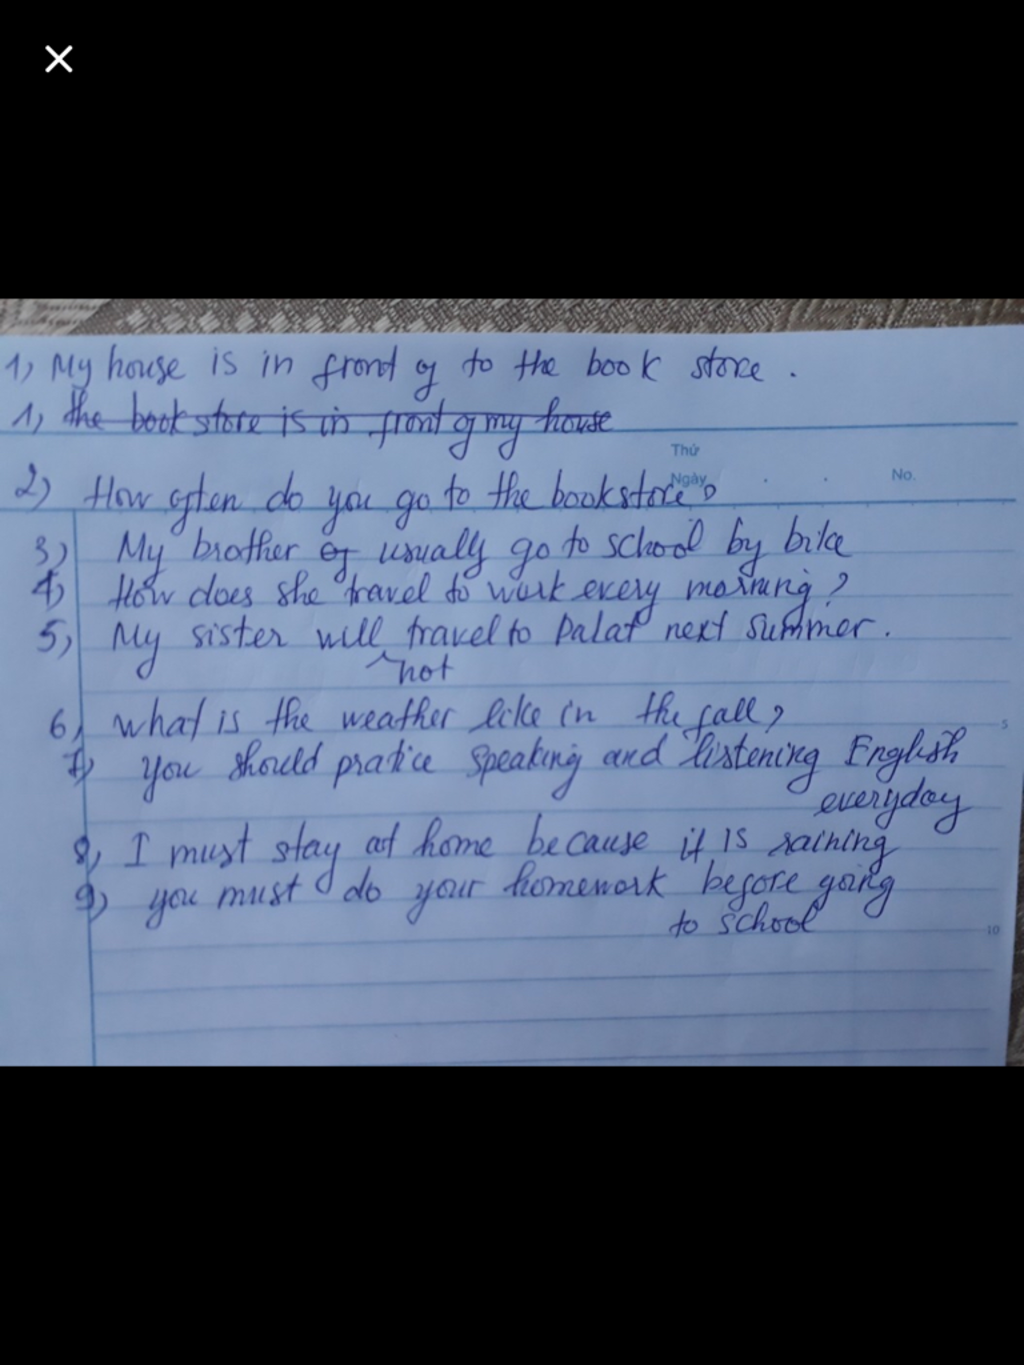 1, My house is in front of to the book store .
1, the bookstore is in front of my house
Thứ
Ngày . . No.
2) How often do you go to the bookstore?
3) My brother of usually go to school by bike
4) How does she travel to work every morning ?
5) My sister will travel to Dalat next summer .
not
6, what is the weather like in the fall ?
7) you should pratice speaking and listening English
everyday
8, I must stay at home because it is raining
9) you must do your homework before going
to school
5
10